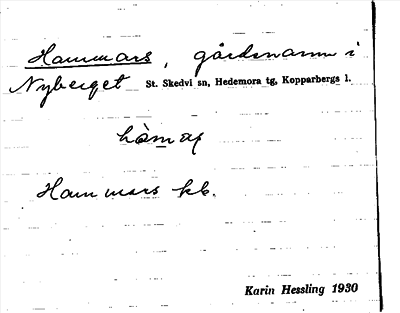 Hammars, gårdsnamn i
Nyberget St. Skedvi sn, Hedemora tg, Kopparbergs l.
Hammars kb.
Karin Hessling 1930